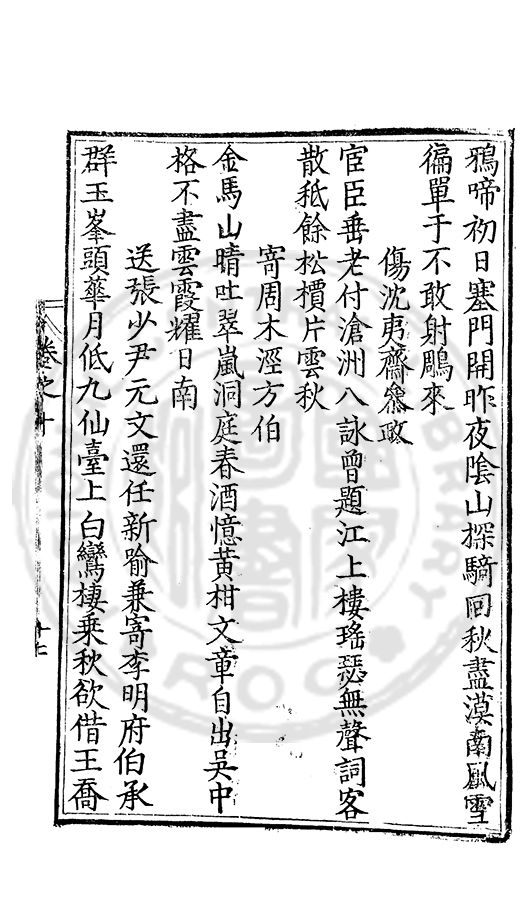 鴉啼初日塞門開昨夜陰山探騎囘秋盡漠南風雪
徧單于不敢射鵰來
傷沈夷齋叅政
宦臣垂老付滄洲八詠曾題江上樓瑤瑟無聲詞客
散秪餘松檟片雲秋
寄周木涇方伯
金馬山晴吐翠嵐洞庭春酒憶黄柑文章自出吳中
格不盡雲霞耀日南
送張少尹元文還任新喻兼寄李明府伯承
群玉峯頭華月低九仙臺上白鸞棲乗秋欲借王喬
卷之十
十七